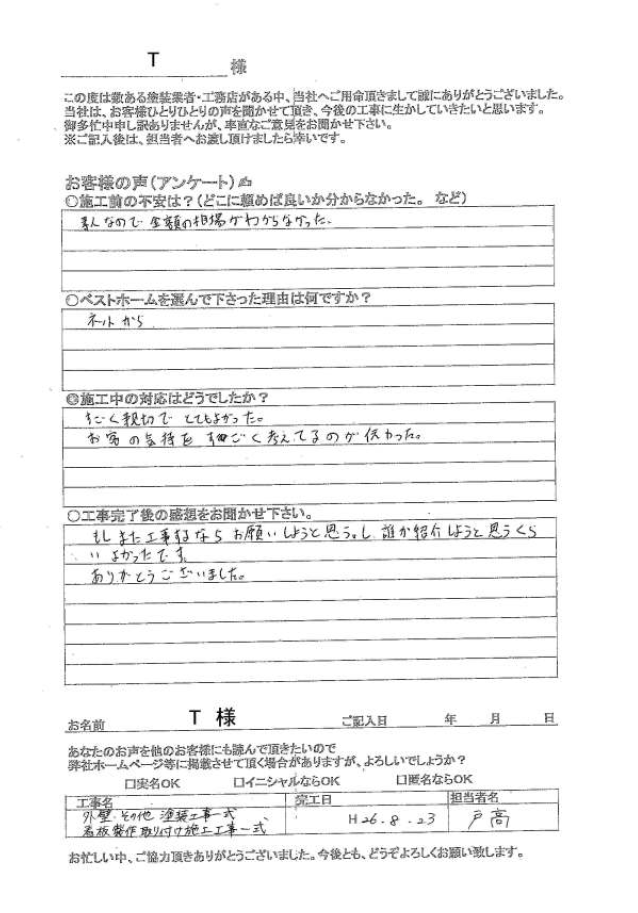 T 様
この度は数ある塗装業者・工務店がある中、当社へご用命頂きまして誠にありがとうございました。
当社は、お客様ひとりひとりの声を聞かせて頂き、今後の工事に生かしていきたいと思います。
御多忙中申し訳ありませんが、率直なご意見をお聞かせ下さい。
※ご記入後は、担当者へお渡し頂けましたら幸いです。
お客様の声(アンケート)✍
○施工前の不安は?(どこに頼めば良いか分からなかった。 など)
素人なので 金額の相場がわからなかった.
○ベストホームを選んで下さった理由は何ですか?
ネットから
◎施工中の対応はどうでしたか?
すごく親切で とてもよかった。
お客の気持を すごく考えてるのが伝わった。
○工事完了後の感想をお聞かせ下さい。
もしまた工事するなら お願いしようと思う。し 誰か紹介しようと思うくら
い よかったです。
ありがとうございました。
お名前 T 様 ご記入日 年 月 日
あなたのお声を他のお客様にも読んで頂きたいので
弊社ホームページ等に掲載させて頂く場合がありますが、よろしいでしょうか?
□実名OK □イニシャルならOK □匿名ならOK
工事名 完工日 担当者名
外壁・その他 塗装工事一式 H26.8.23 戸高
看板製作取り付け施工工事一式
お忙しい中、ご協力頂きありがとうございました。今後とも、どうぞよろしくお願い致します。